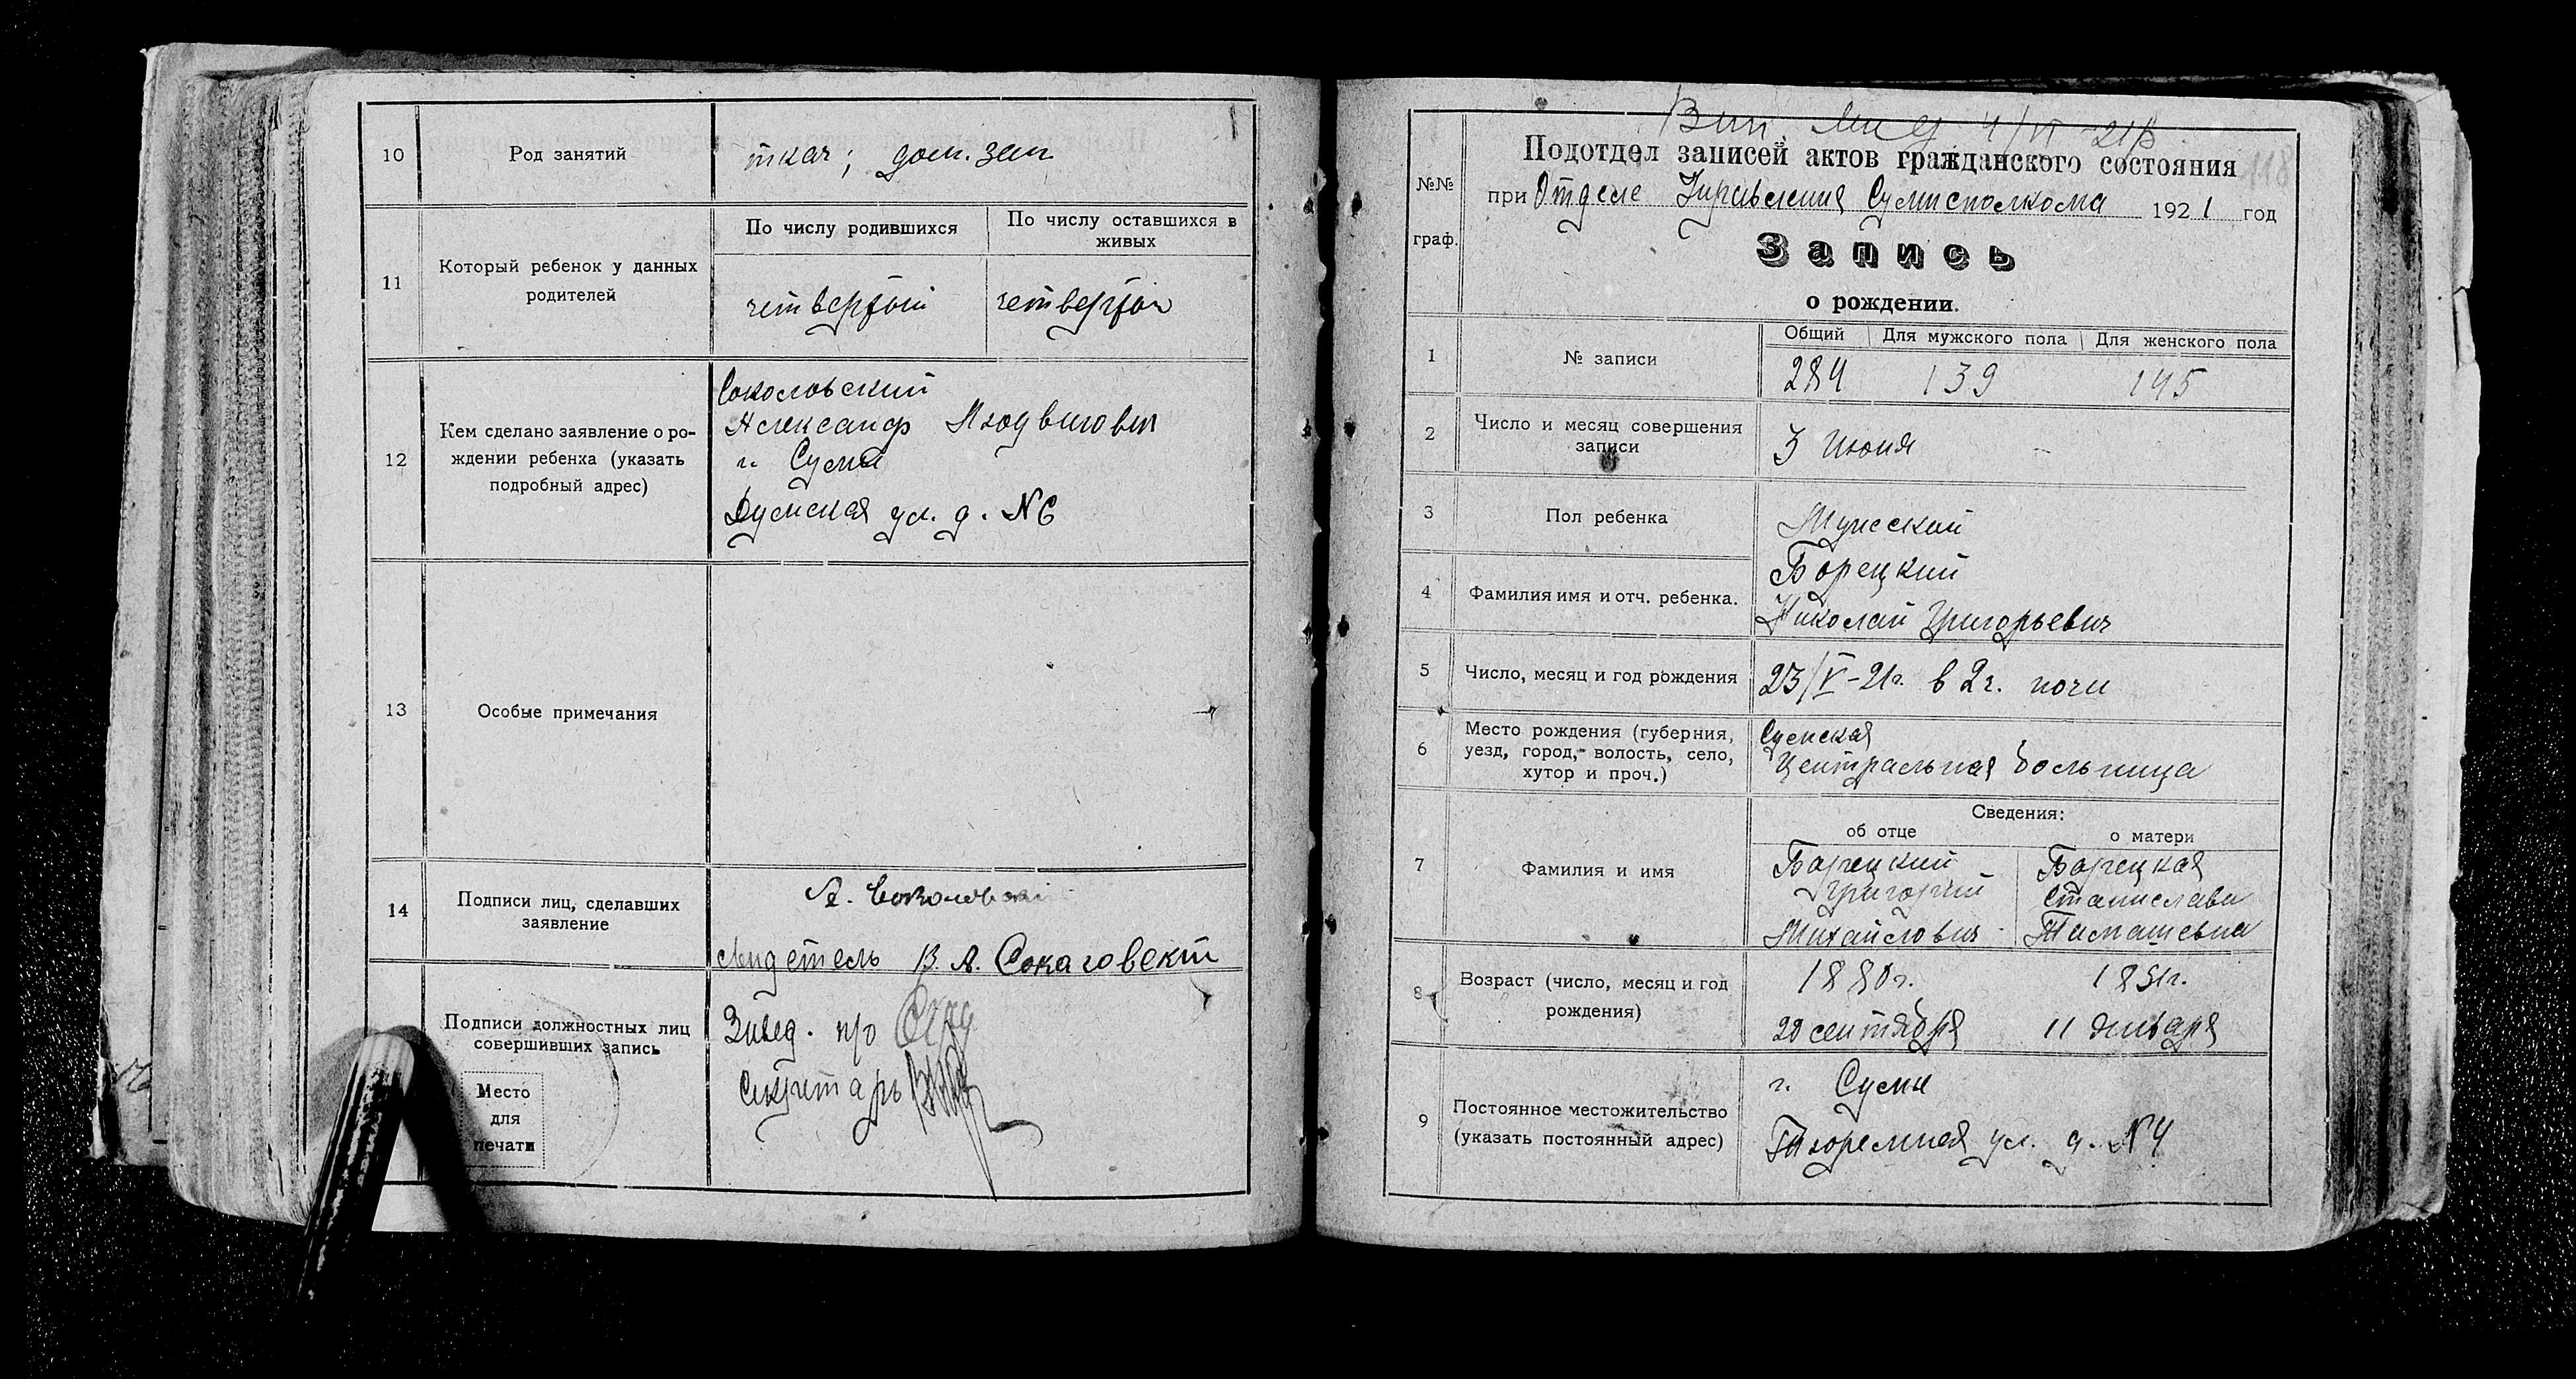 10
Род занятий
ткач; дом. зан
11
Который ребенок у данных
родителей
По числу родившихся
По числу оставшихся в
живых
четвертый
четвертый
12
Кем сделано заявление о ро-
ждении ребенка (указать
подробный адрес)
Соколовский
Александр Людвигович
г. Сумы
Сумская ул. д. № 6
13
Особые примечания
14
Подписи лиц, сделавших
заявление
А. Соколовский
свидетель В. А.
Подписи должностных лиц
совершивших запись
Место
для
печати
Завед. п/о
Секретарь
4/VI-21
118
№№
граф.
Подотдел записей актов гражданского состояния
при Отделе Управления Сумисполкома 1921 год
Запись
о рождении.
1
№ записи
Общий
Для мужского пола
Для женского пола
284
139
145
2
Число и месяц совершения
записи
3 Июня
3
Пол ребенка
Мужской
4
Фамилия имя и отч. ребенка.
Борецкий
Николай Григорьевич
5
Число, месяц и год рождения
23/V-21г. в 2ч. ночи
6
Место рождения (губерния,
уезд, город, волость, село,
хутор и проч.)
Сумская
Центральная больница
Сведения:
об отце
о матери
7
Фамилия и имя
Борецкий
Григорий
Михайлович
Борецкая
Станислава
8
Возраст (число, месяц и год
рождения)
1880г.
20 сентября
11 января
9
Постоянное местожительство
(указать постоянный адрес)
г. Сумы
Тюремная ул. д. № 4